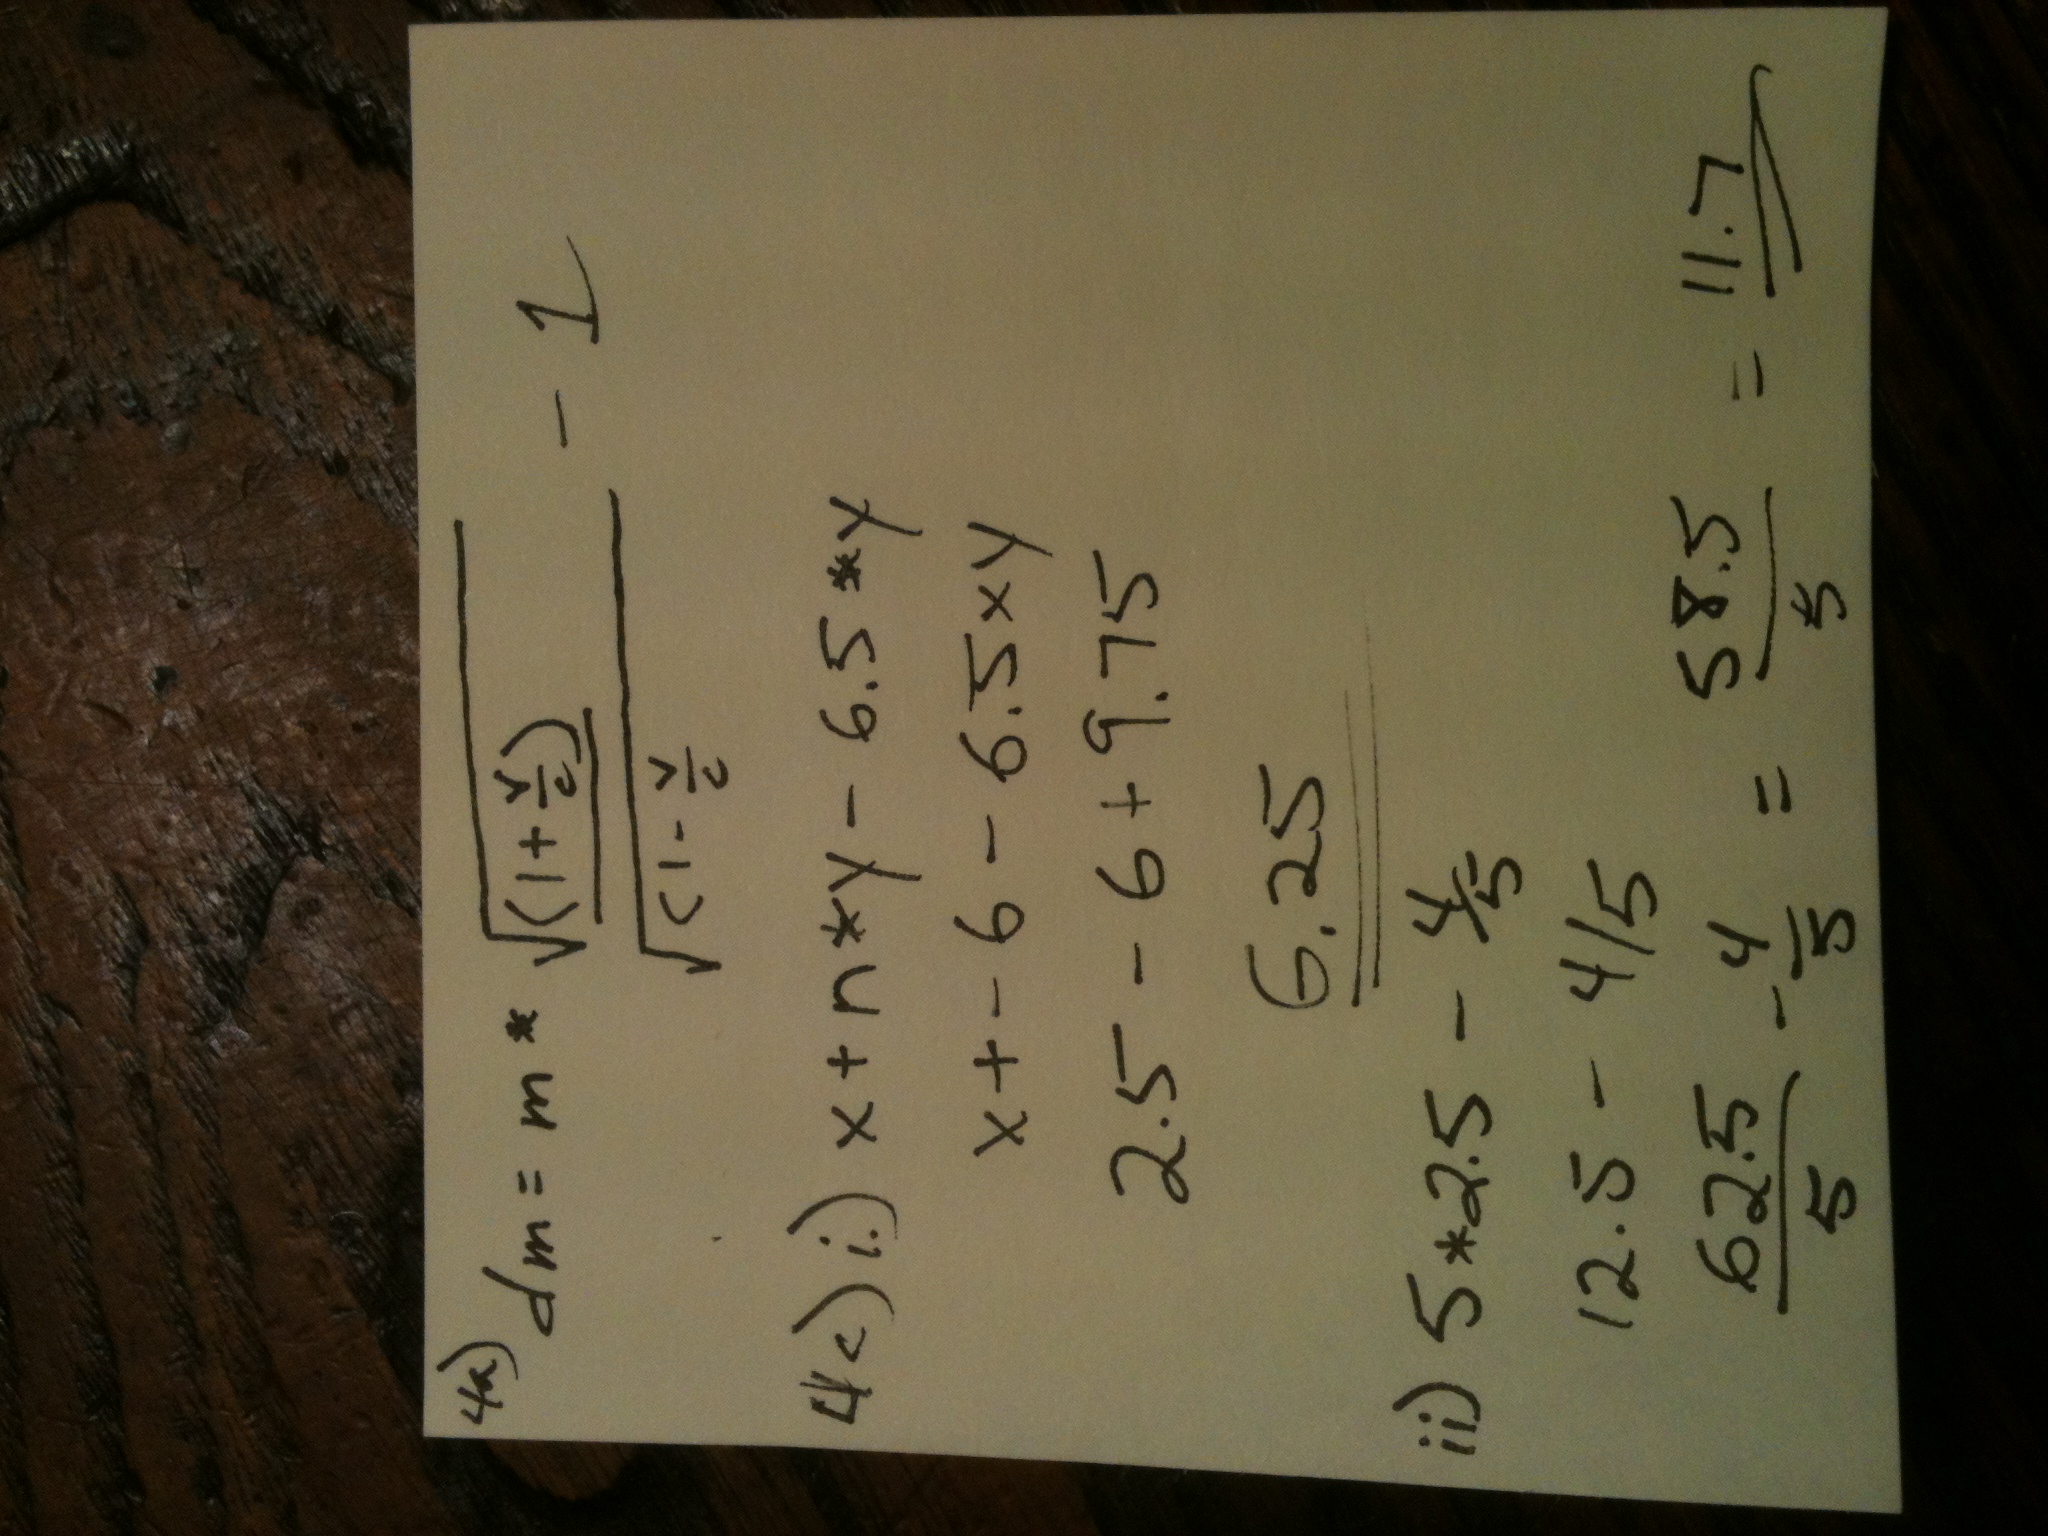 4a) dm = m * √(1 + v/c) / √(1 - v/c - 1
4c) i.) x + n * y - 6.5 * y
x + - 6 - 6.5 x y
2.5 - 6 + 9.75
6.25
ii) 5 * 2.5 - 4/5
12.5 - 4/5
62.5/5 - 4/5 = 58.5/5 = 11.7